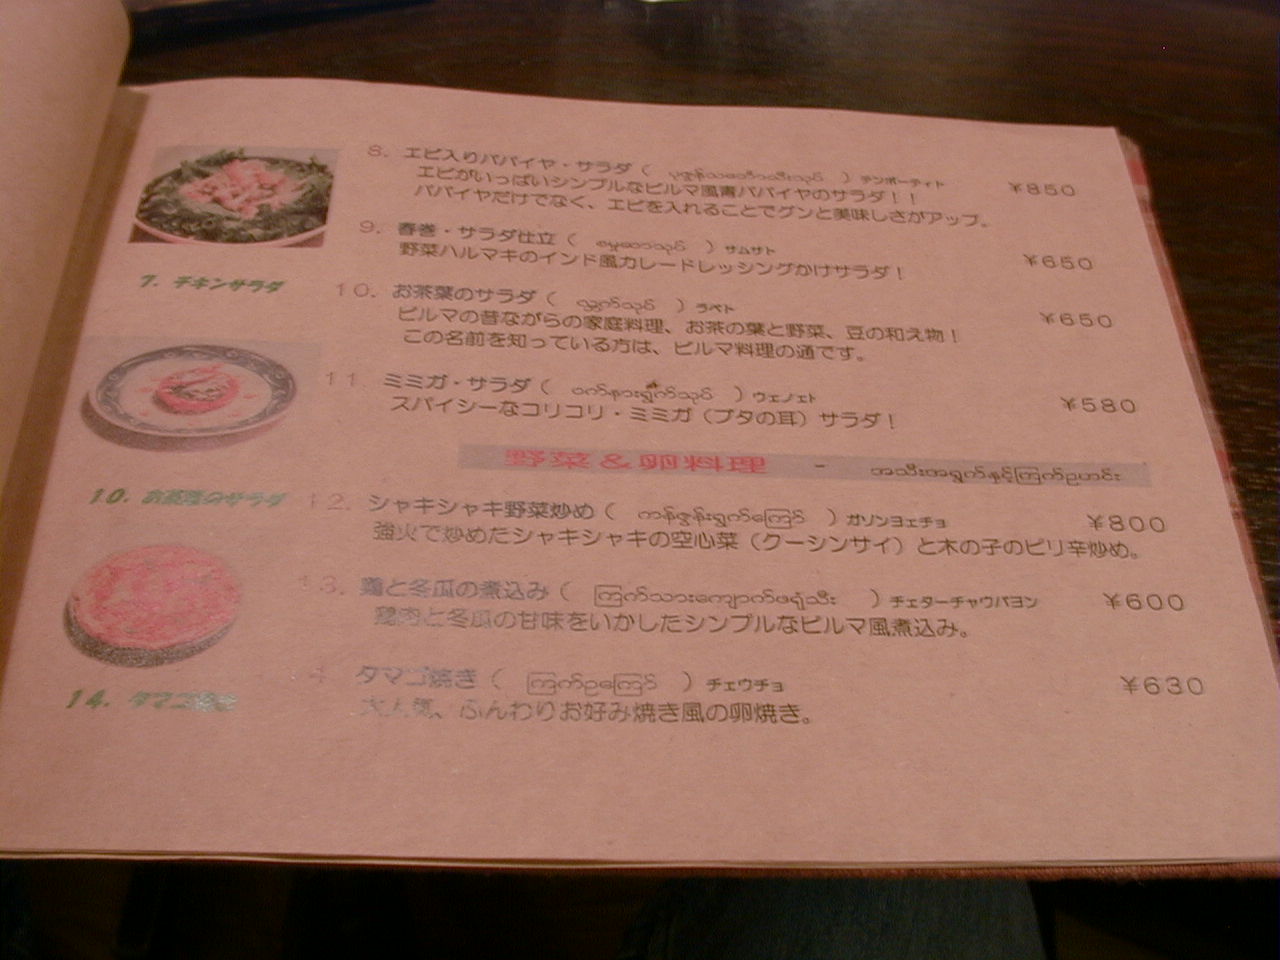 8. エビ入りパパイヤ・サラダ ( ပုဇွန်သင်္ဘောသီးသုပ် ) ¥850
エビがいっぱいシンプルなビルマ風青パパイヤのサラダ！！
パパイヤだけでなく、エビを入れることでグンと美味しさがアップ。
9. 春巻・サラダ仕立 ( စမူဆာသုပ် ) サムサト ¥650
野菜ハルマキのインド風カレードレッシングかけサラダ！
7. チキンサラダ
10. お茶葉のサラダ ( လ္ဘက်သုပ် ) ラペト ¥650
ビルマの昔ながらの家庭料理、お茶の葉と野菜、豆の和え物！
この名前を知っている方は、ビルマ料理の通です。
11. ミミガ・サラダ ( ဝက်နားရွက်သုပ် ) ウェノェト ¥580
スパイシーなコリコリ・ミミガ（ブタの耳）サラダ！
野菜＆卵料理 - အသီးအရွက်နှင့်ကြက်ဥဟင်း
10. お茶葉のサラダ
12. シャキシャキ野菜炒め ( ကန်စွန်းရွက်ကြော် ) ガゾンヨェチョ ¥800
強火で炒めたシャキシャキの空心菜（クーシンサイ）と木の子のピリ辛炒め。
13. 鶏と冬瓜の煮込み ( ကြက်သားကျောက်ဖရုံသီး ) チェターチャウパヨン ¥600
鶏肉と冬瓜の甘味をいかしたシンプルなビルマ風煮込み。
14. タマゴ焼き
4. タマゴ焼き ( ကြက်ဥကြော် ) チェウチョ ¥630
大人気、ふんわりお好み焼き風の卵焼き。